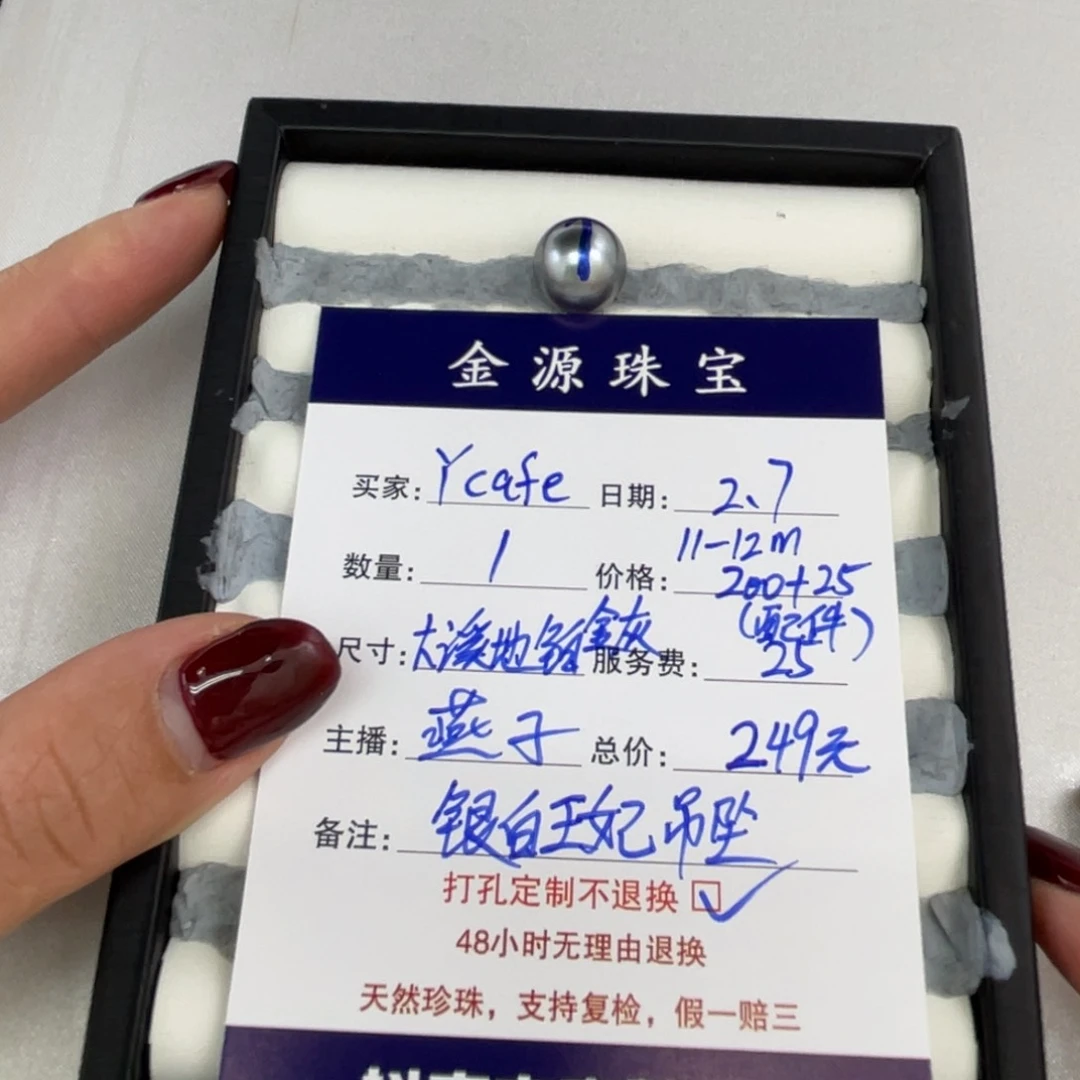 金源珠宝
买家: Ycafe 日期: 2、7
11-12m
数量: 1 价格: 200+25
(配件)
尺寸: 大溪地 金灰 服务费: 25
主播: 燕子 总价: 249元
备注: 银白王妃吊坠
打孔定制不退换 ☑
48小时无理由退换
天然珍珠，支持复检，假一赔三